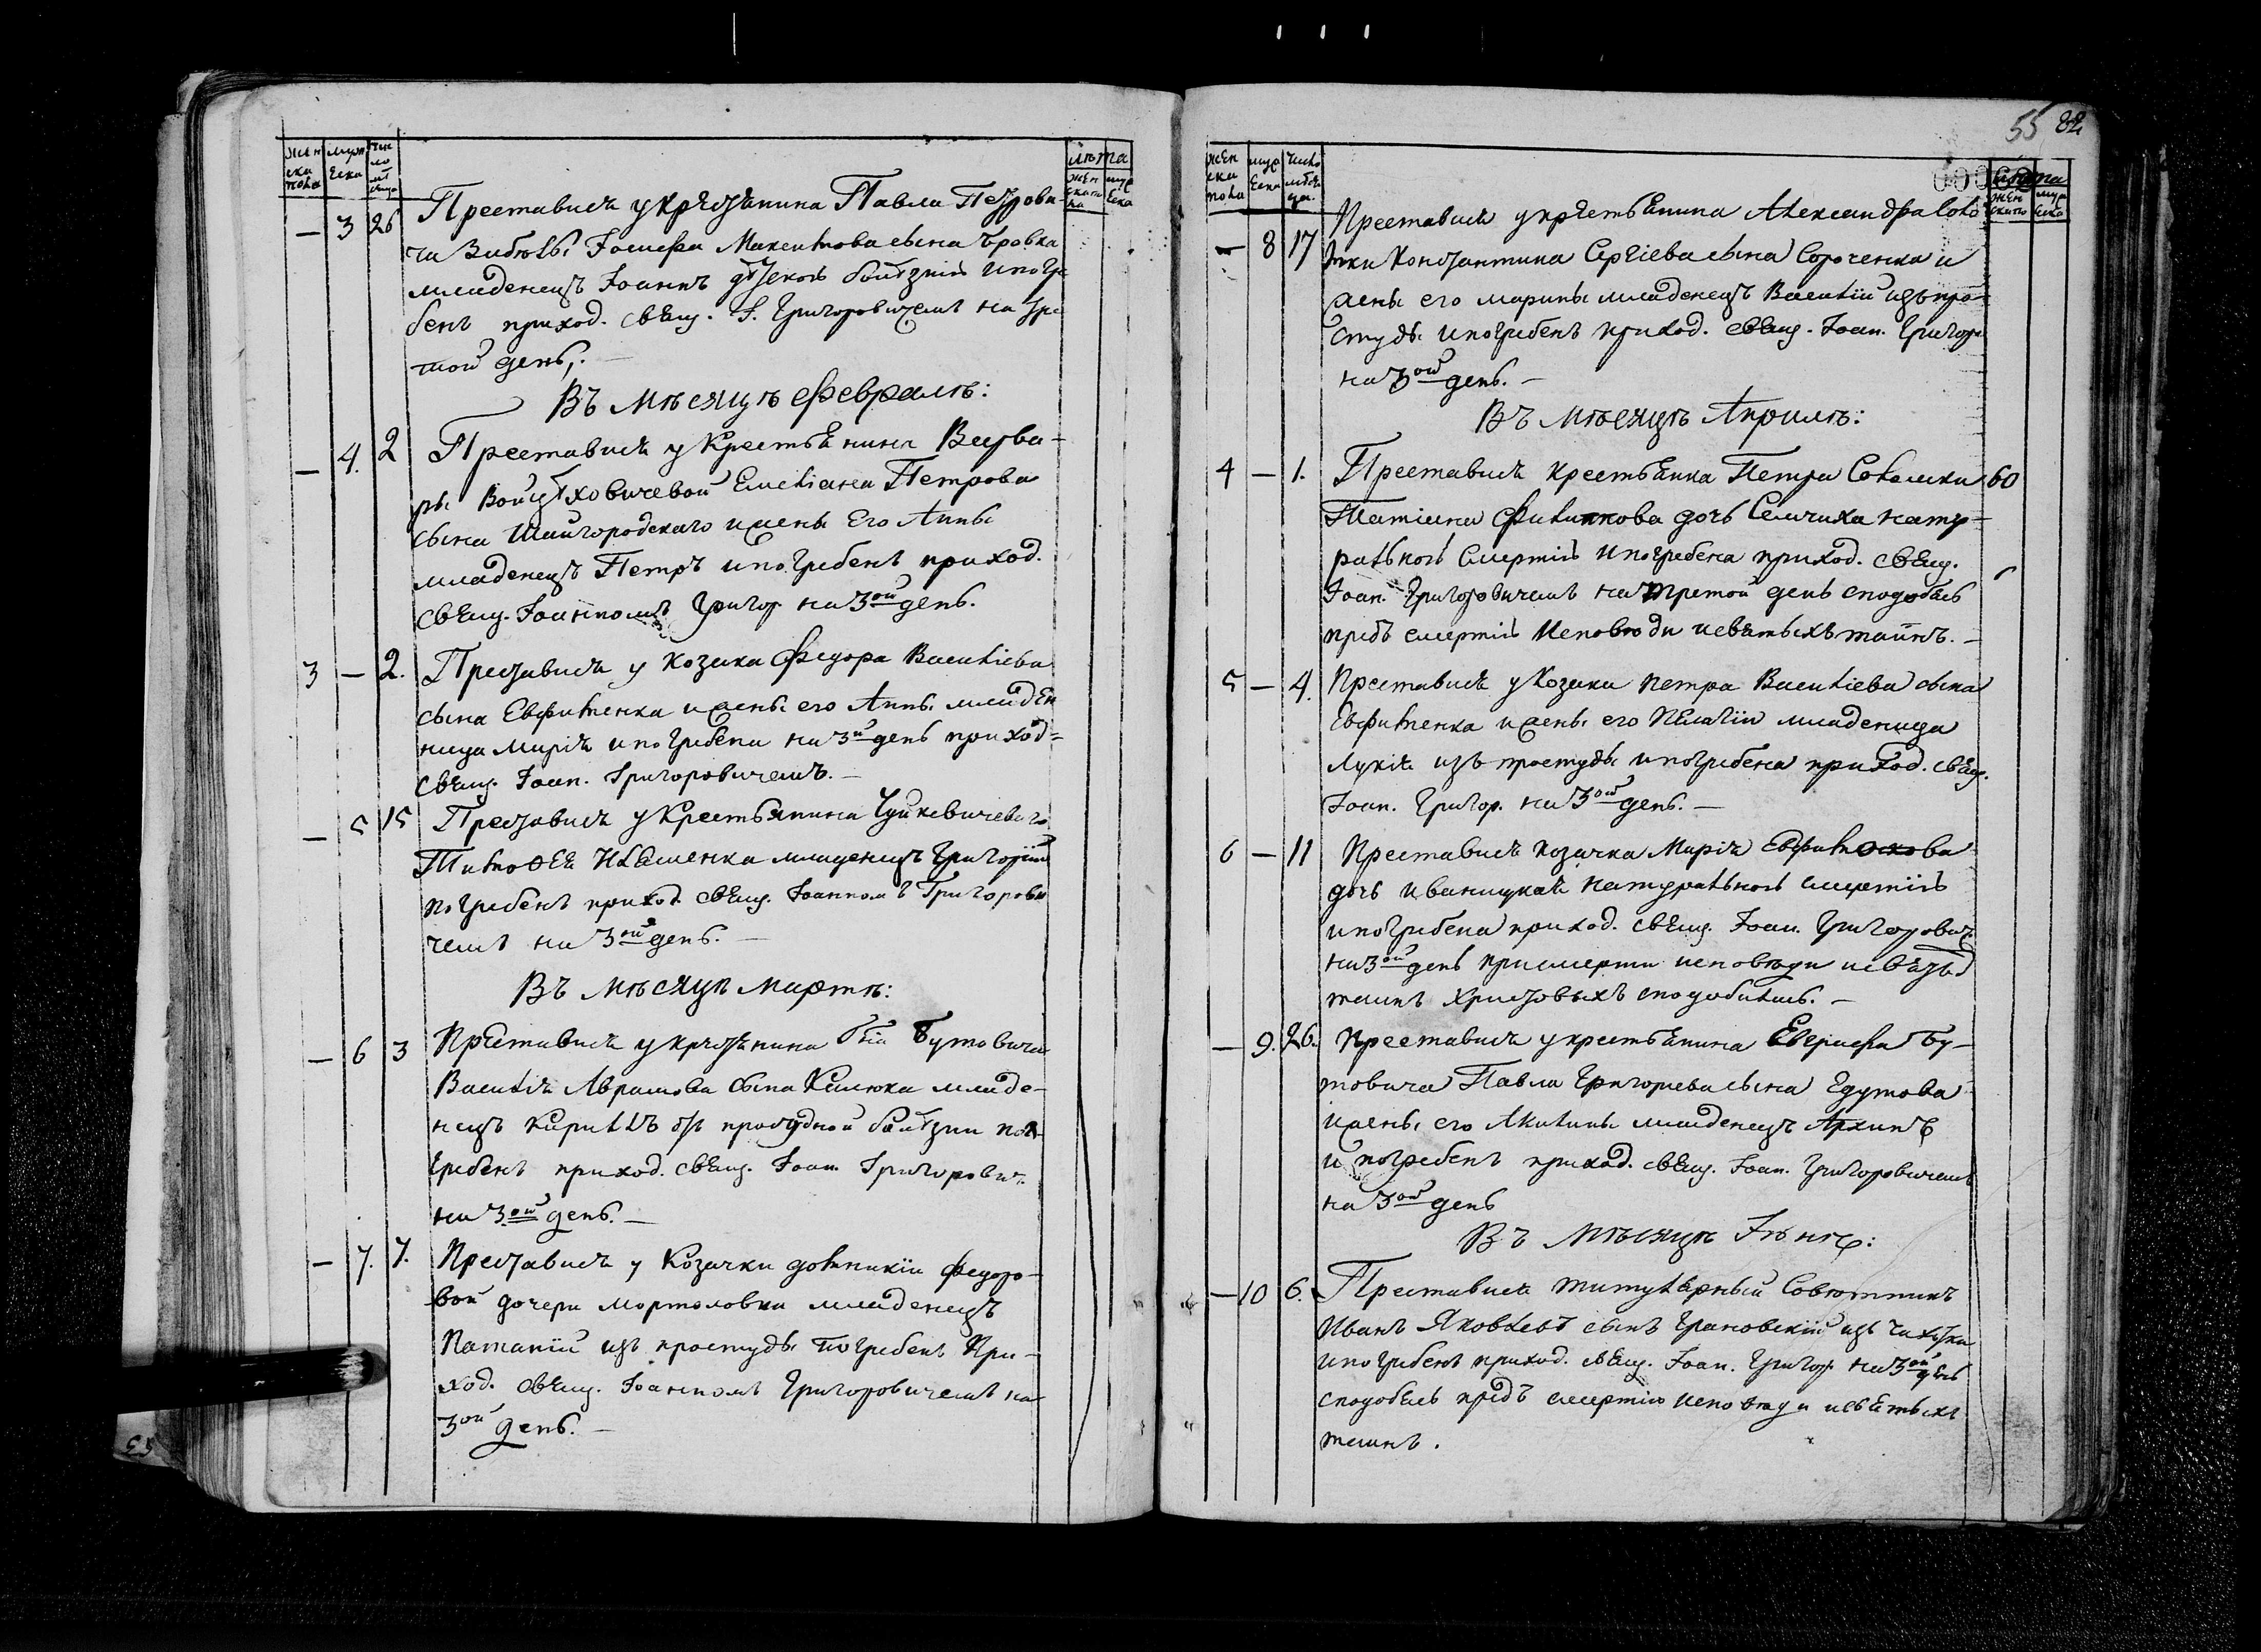 жен ска пола
муж еска
чис ло мѣ сяца
лѣта
жен скаго по ла
муж еска
— 3 26 Преставися у крестьянина Павла Петрови-
ча Іосифа Максимова сына
младенецъ Іоаннъ дѣтскою болѣзнію и погре
бенъ приход. свящ. І. Григоровичемъ на тре
той день;. —
Въ мѣсяцѣ Февралѣ:
— 4. 2 Преставися у крестьянина Варва-
ры Войцѣховичевой Емеліана Петрова
сына Шайгородскаго и жены Его Анны
младенецъ Петръ и погребенъ приход.
свящ. Іоанномъ Григор. на 3ой день.
3 — 2. Преставися у козака Федора Василіева
сына Евфименка и жены его Анны младен
ница Марія и погребена на 3й день приход=
свящ. Іоан. Григоровичемъ. —
— 5 15 Преставися у крестьянина
Тимоѳея младенецъ Григорій
погребенъ приход. свящ. Іоанномъ Григорови
чемъ на 3ой день. —
Въ мѣсяцѣ мартѣ:
— 6 3 Преставися у крестянина Бутовича
Василія Аврамова сына младе-
нецъ Кирилъ отъ простудной болѣзни по
гребенъ приход. свящ. Іоан. Григорович.
на 3ой день. —
— 7. 7. Преставися у козачки домникіи федоро-
вой дочери младенецъ
Патапій изъ простуды погребенъ при-
ход. свящ. Іоанномъ Григоровичемъ на
3ой день. —
55 82
жен ска пола
муж еска
число мѣся ца.
лѣта
жен скаго
муж еска
— 8 17 Преставися у крестьянина Александра
Константина Сергіева сына Сороченка и
жены его марины младенецъ Василій изъ про
студы и погребенъ приход. свящ. Іоан. Григор.
на 3ой день. —
Въ мѣсяцѣ Априлѣ:
4 — 1. Преставися крестьянка Петра 60
Татіана Филиппова дочь нату-
ральною смертію и погребена приход. свящ.
Іоан. Григоровичемъ на третой день сподобясь
предъ смертію исповѣди и святыхъ таинъ. —
5 — 4. Преставися у козака петра Василіева сына
Евфименка и жены его Пелагіи младеница
Лукія изъ простуды и погребена приход. свящ.
Іоан. Григор. на 3ой день. —
6 — 11 Преставися козачка Марія
дочь иваницкая натуральною смертію
и погребена приход. свящ. Іоан. Григорович.
на 3ой день при смерти исповѣди и святых
таинъ христовыхъ сподобилась. —
— 9. 26. Преставися у крестьянина Бу-
товича Павла Григориева сына
и жены его Акилины младенецъ Архипъ
и погребенъ приход. свящ. Іоан. Григоровичемъ
на 3ой день
Въ мѣсяцѣ Іюнѣ:
— 10 6. Преставися титулярный Совѣтникъ
Иванъ Яковлевъ сынъ Грановскій изъ чахотки
и погребенъ приход. свящ. Іоан. Григор. на 3ой день
сподобясь предъ смертію исповѣди и святыхъ
таинъ.